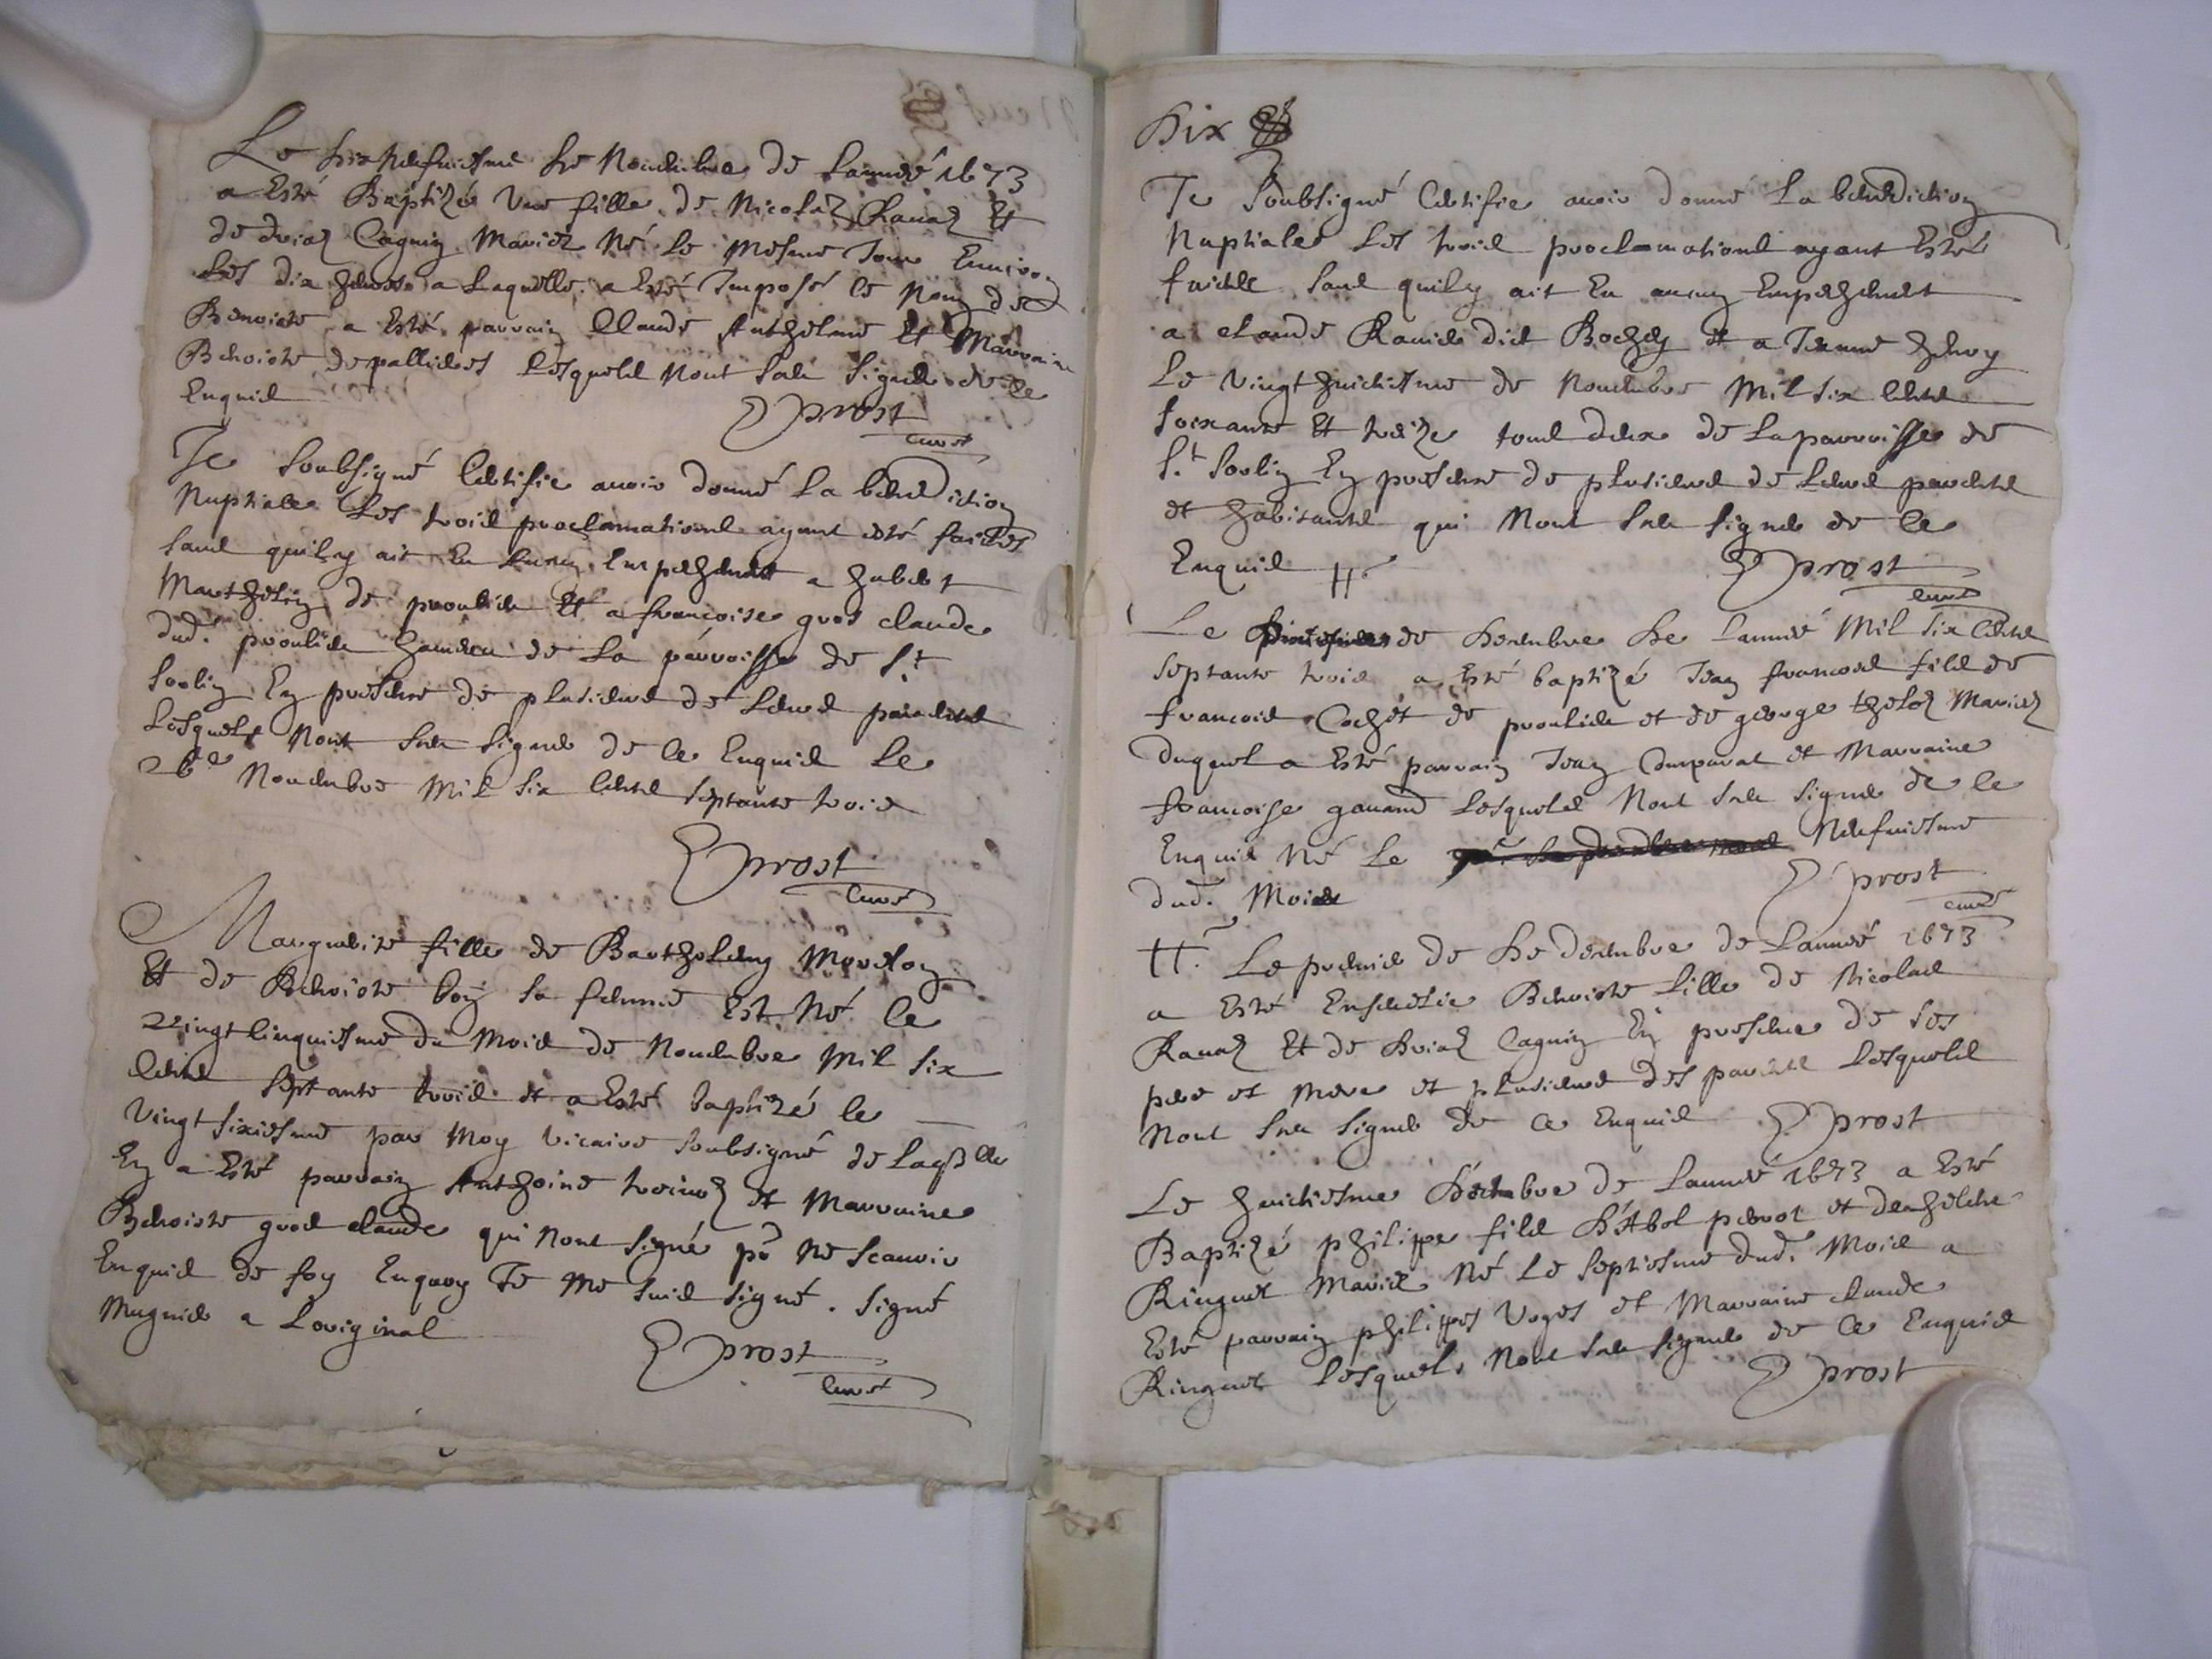 Le dixneufuiesme de Nouembre de Lannée 1673
a Esté Baptizée Une fille de Nicolas Rauaz Et
de driaz Cagnin Mariez Né Le Mesme Jour Enuiron
Les dix heures a Laquelle a Esté Imposé le Nom de
Benoiste a Esté parrain Claude Anthelme Et Marraine
Benoiste de pallieres Lesquels Nont Sceu Signer de ce
Enquis
prost
curé
Je Soubsigné Certifie auoir donné La benediction
Nuptiale Les trois proclamations ayant esté faictes
Sans quil y ait Eu aucun Empeschement a hubert
Marthelin de proulieu Et a francoise gros claude
dud. proulieu hameau de La parroisse de St
Sorlin En presence de plusieurs de Leurs parents
Lesquels Nont Sceu Signer de ce Enquis Le
26e Nouembre Mil Six Cents Septante trois
prost
Curé
Marguerite fille de Barthelemy Morelon
Et de Benoiste boy Sa femme Est Né le
Vingt Cinquiesme du Mois de Nouembre Mil Six
Cents Septante trois et a Esté baptizé le
Vingt Sixiesme par Moy Vicaire Soubsigné de Laqlle
En a Esté parrain Anthoine et Marraine
Benoiste gros claude qui Nont Signé pr Ne Scauoir
Enquis de foy Enquoy Je Me Suis Signé. Signé
Mugnier a Loriginal
prost
Curé
Dix
Je Soubsigné Certifie auoir donné La benediction
Nuptiale Les trois proclamations ayant Esté
faictes Sans quil y ait Eu aucun Empeschement
a claude Rauier dict Bochey et a Jeanne
Le Vingt huictiesme de Nouembre Mil Six Cents
Soixante Et treize tous deux de La parroisse de
St Sorlin En presence de plusieurs de Leurs parents
et habitants qui Nont Sceu Signer de Ce
Enquis H
prost
Curé
Le de Decembre de Lannée Mil Six Cents
Septante trois a Esté baptizé Jean francois fils de
francois Cochet de proulieu et de george thelos Mariez
duquel a Esté parrain Jean Comparat et Marraine
francoise gauand Lesquels Nont Sceu Signer de ce
Enquis Né Le Neufuiesme
dud. Mois
prost
curé
H Le premier de De decembre de Lannée 1673
a Esté Enseuelie Benoiste fille de Nicolas
Rauaz Et de driaz Cagnin En presence de Ses
pere et Mere et plusieurs des parents Lesquels
Nont Sceu Signer de ce Enquis prost
Le huictiesme Decembre de Lannée 1673 a Esté
Baptizé philippe fils dAbel perrot et
Ringuet Mariez Né Le Septiesme dud. Mois a
Esté parrain philippes Voges et Marraine claude
Ringuet Lesquels Nont Sceu Signer de Ce Enquis
prost